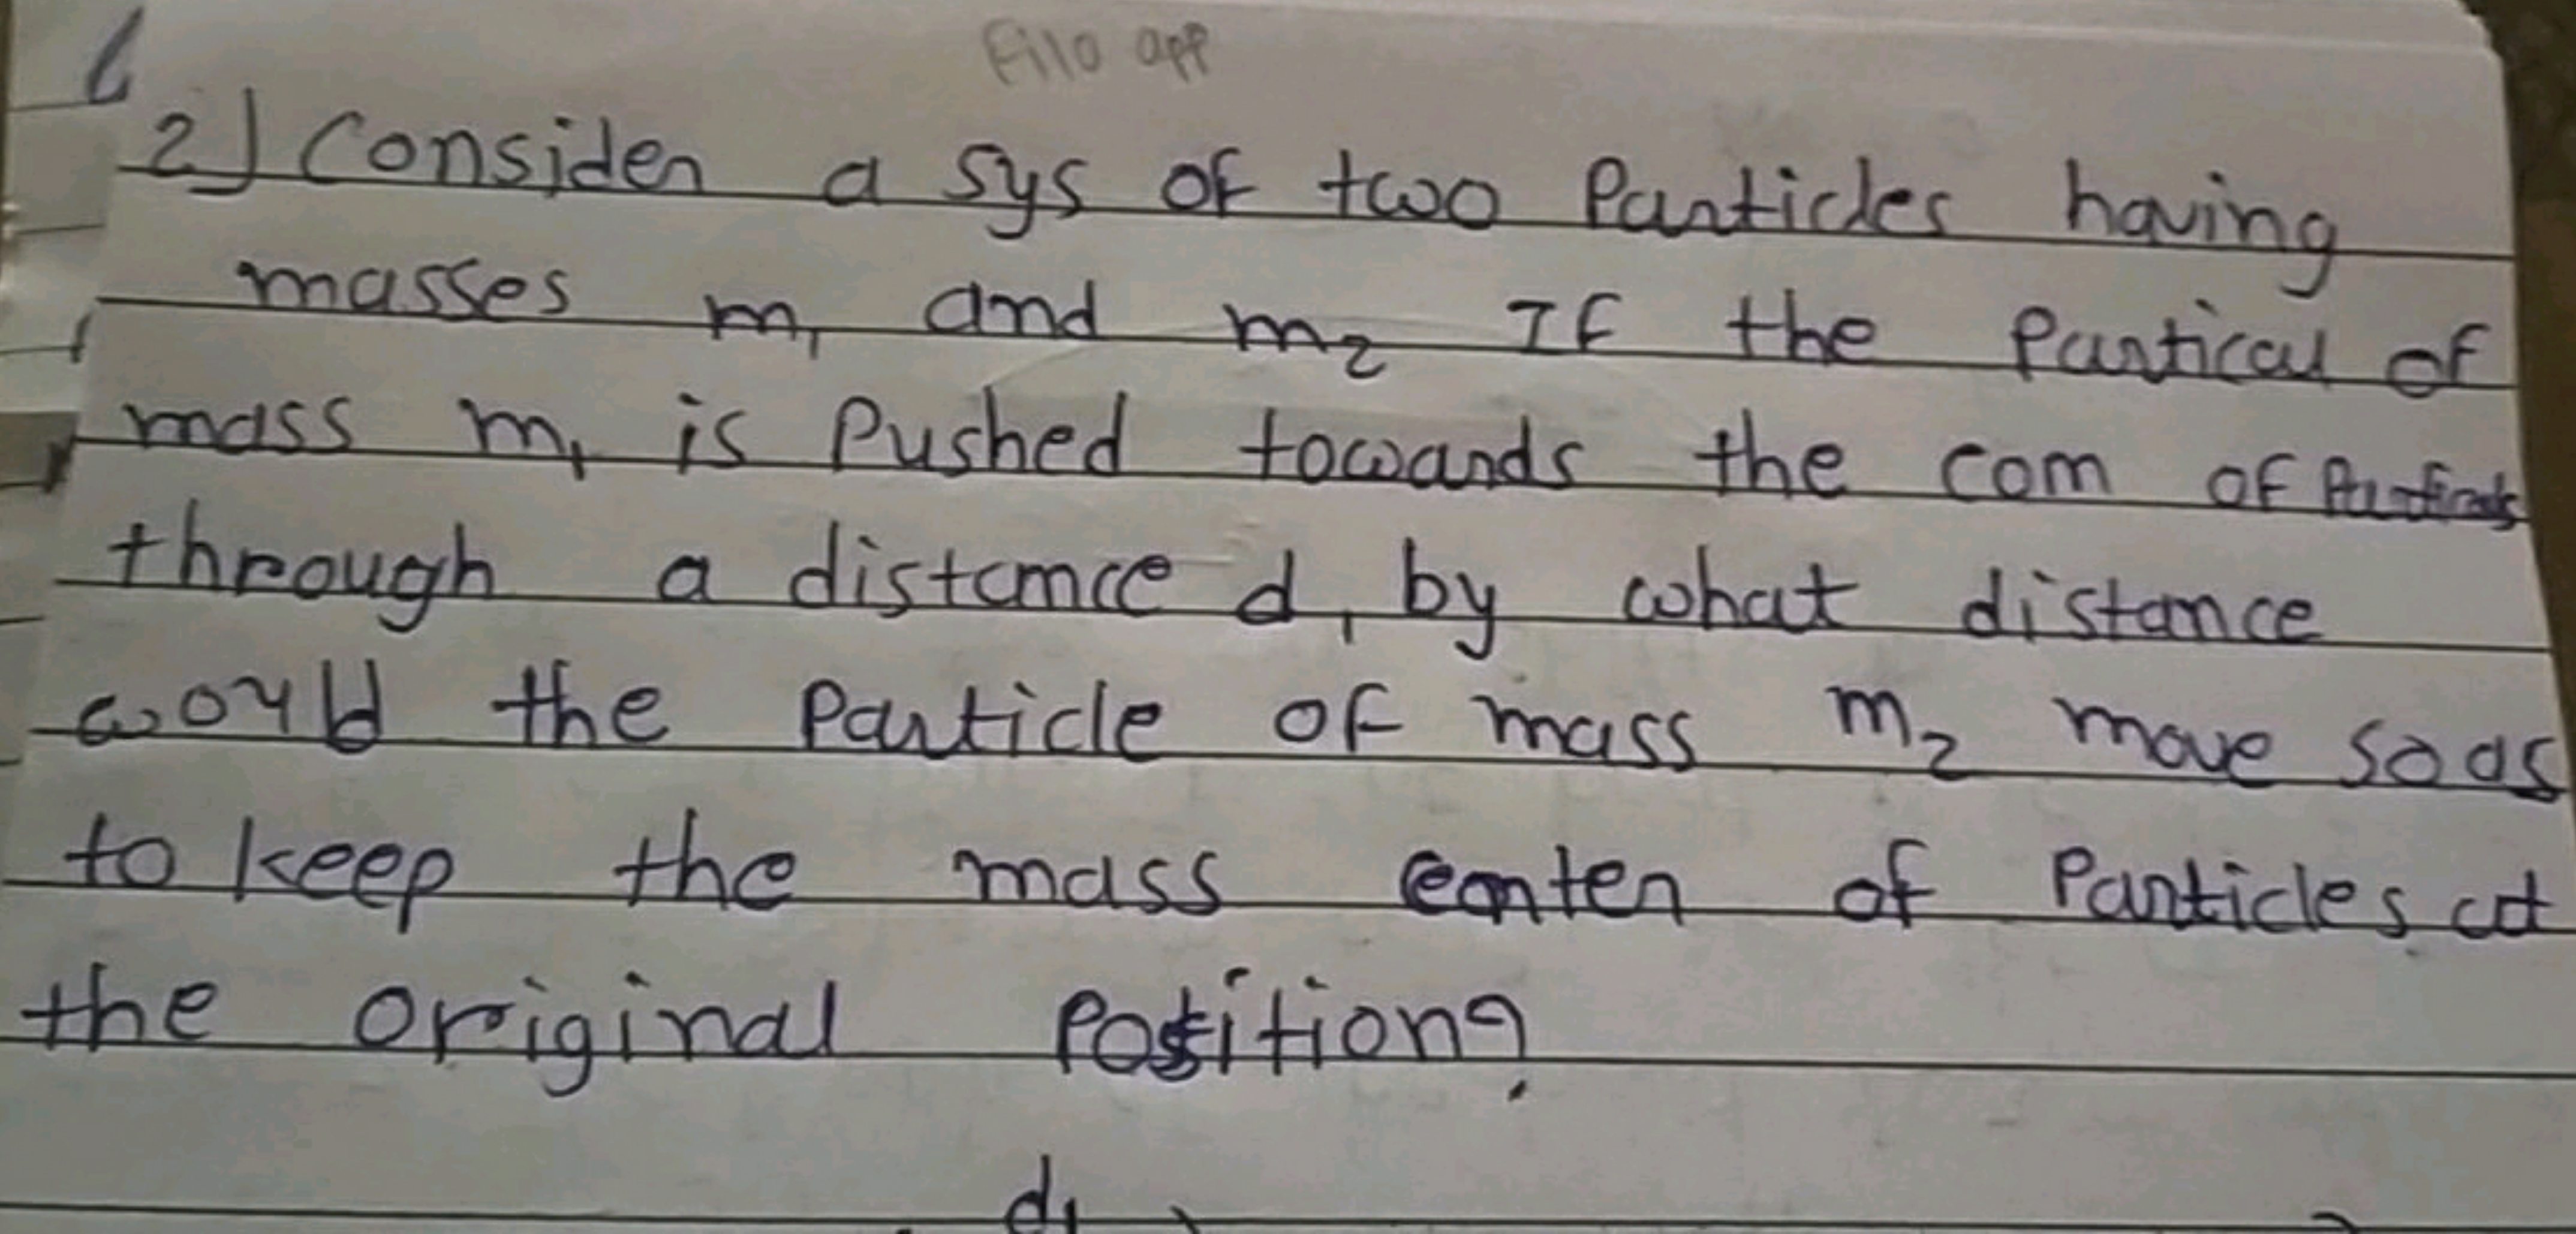 Filo app
2) Consider a sys of two Particles having
masses m₁ and m₂ If the Partical of
mass m₁ is Pushed towards the com of
through a distance d₁ by what distance
would the Particle of mass m₂ move so as
to keep the mass center of Particles at
the original Position?
d₁